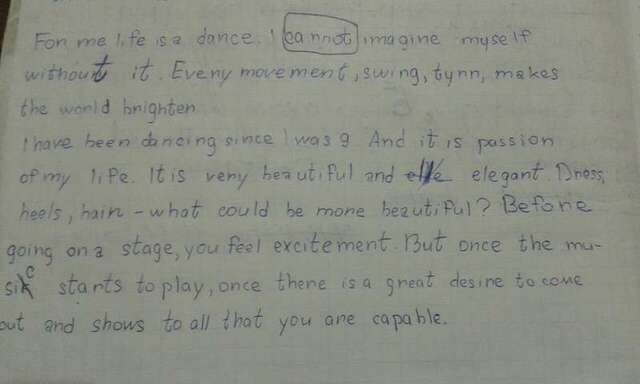 For me life is a dance. I cannot imagine myself
without it. Every movement, swing, tyrn, makes
the world brighter
I have been dancing since I was 9. And it is passion
of my life. It is very beautiful and elegant. Dress,
heels, hair – what could be more beautiful? Before
going on a stage, you feel excitement. But once the mu-
sic starts to play, once there is a great desire to come
out and shows to all that you are capable.